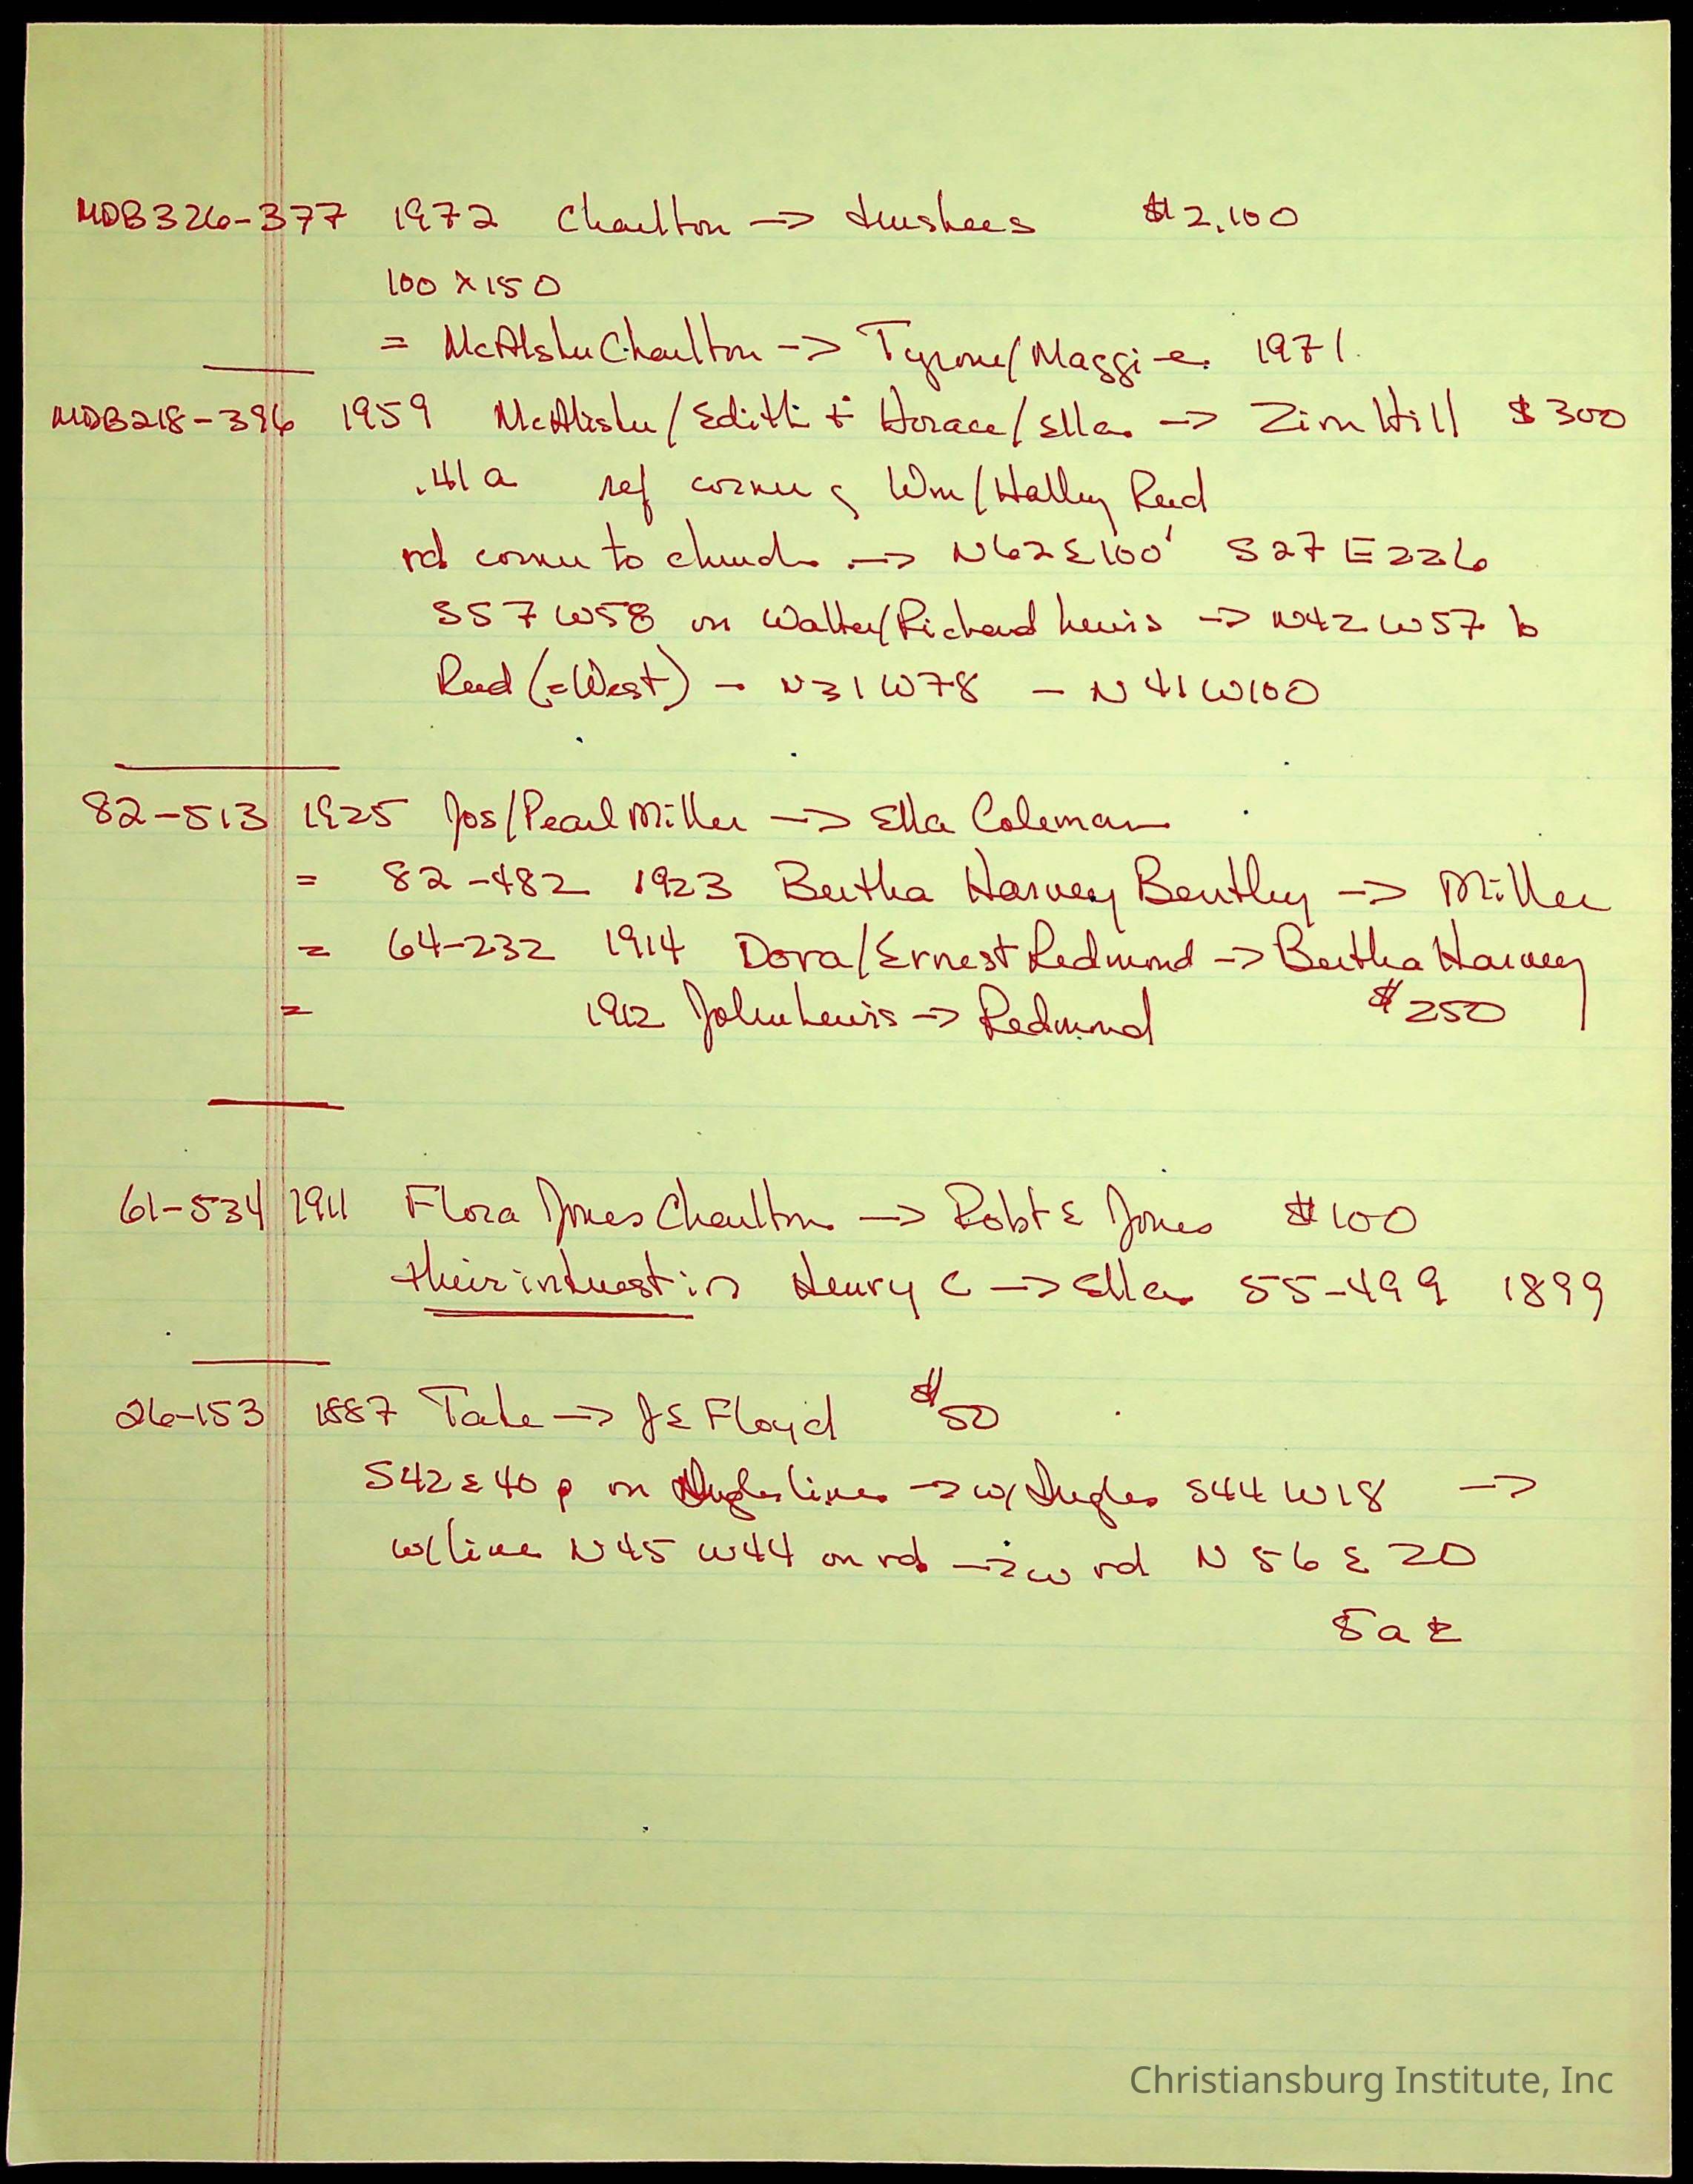 MDB326-377 1972 Charlton -> trustees $2,100
100 x 150
= McAlster Charlton -> Tyrone/Maggie 1971.
MDB218-396 1959 McAlister/Edith + Horace/Ella -> Zim Hill $300
.41 a ref corner Wm/Halley Reed
rd corner to church -> N62E100' S27E226
S57W58 on Walter/Richard Lewis -> N42W57 b
Reed (=West) - N31W78 - N41W100
82-513 1925 Jos/Pearl Miller -> Ella Coleman
= 82-482 1923 Bertha Harvey Bentley -> Miller
= 64-232 1914 Dora/Ernest Redmond -> Bertha Harvey
= 1912 John Lewis -> Redmond $250
61-534 1911 Flora Jones Charlton -> Robt E Jones $100
their interest in Henry C -> Ella 55-499 1899
26-153 1887 Tate -> JE Floyd $50
S42E40 p on lines -> w/ S44W18 ->
w/line N45W44 on rd -> w rd N56E20
5a
Christiansburg Institute, Inc